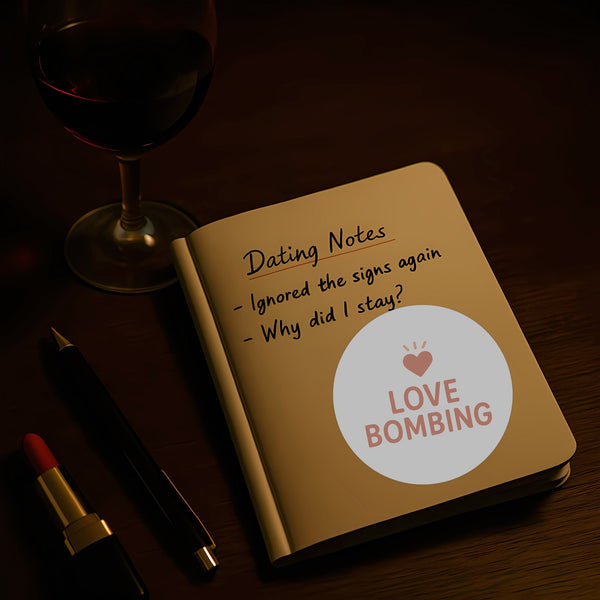 Dating Notes
- Ignored the signs again
- Why did I stay?
LOVE
BOMBING